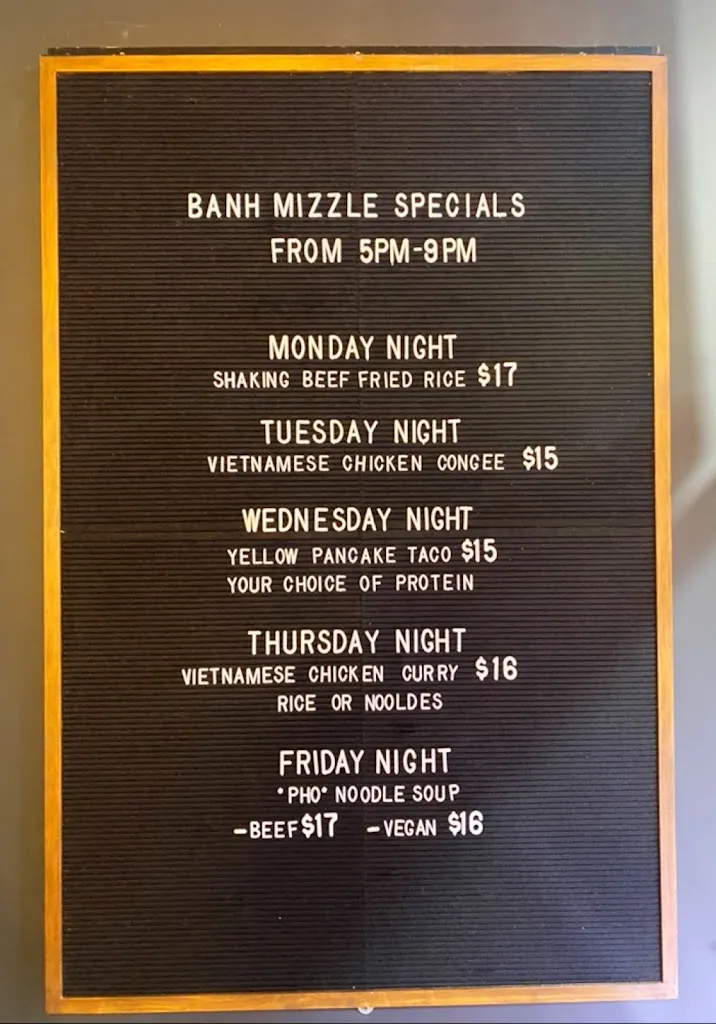 BANH MIZZLE SPECIALS
FROM 5PM-9PM
MONDAY NIGHT
SHAKING BEEF FRIED RICE $17
TUESDAY NIGHT
VIETNAMESE CHICKEN CONGEE $15
WEDNESDAY NIGHT
YELLOW PANCAKE TACO $15
YOUR CHOICE OF PROTEIN
THURSDAY NIGHT
VIETNAMESE CHICKEN CURRY $16
RICE OR NOOLDES
FRIDAY NIGHT
"PHO" NOODLE SOUP
-BEEF $17 -VEGAN $16